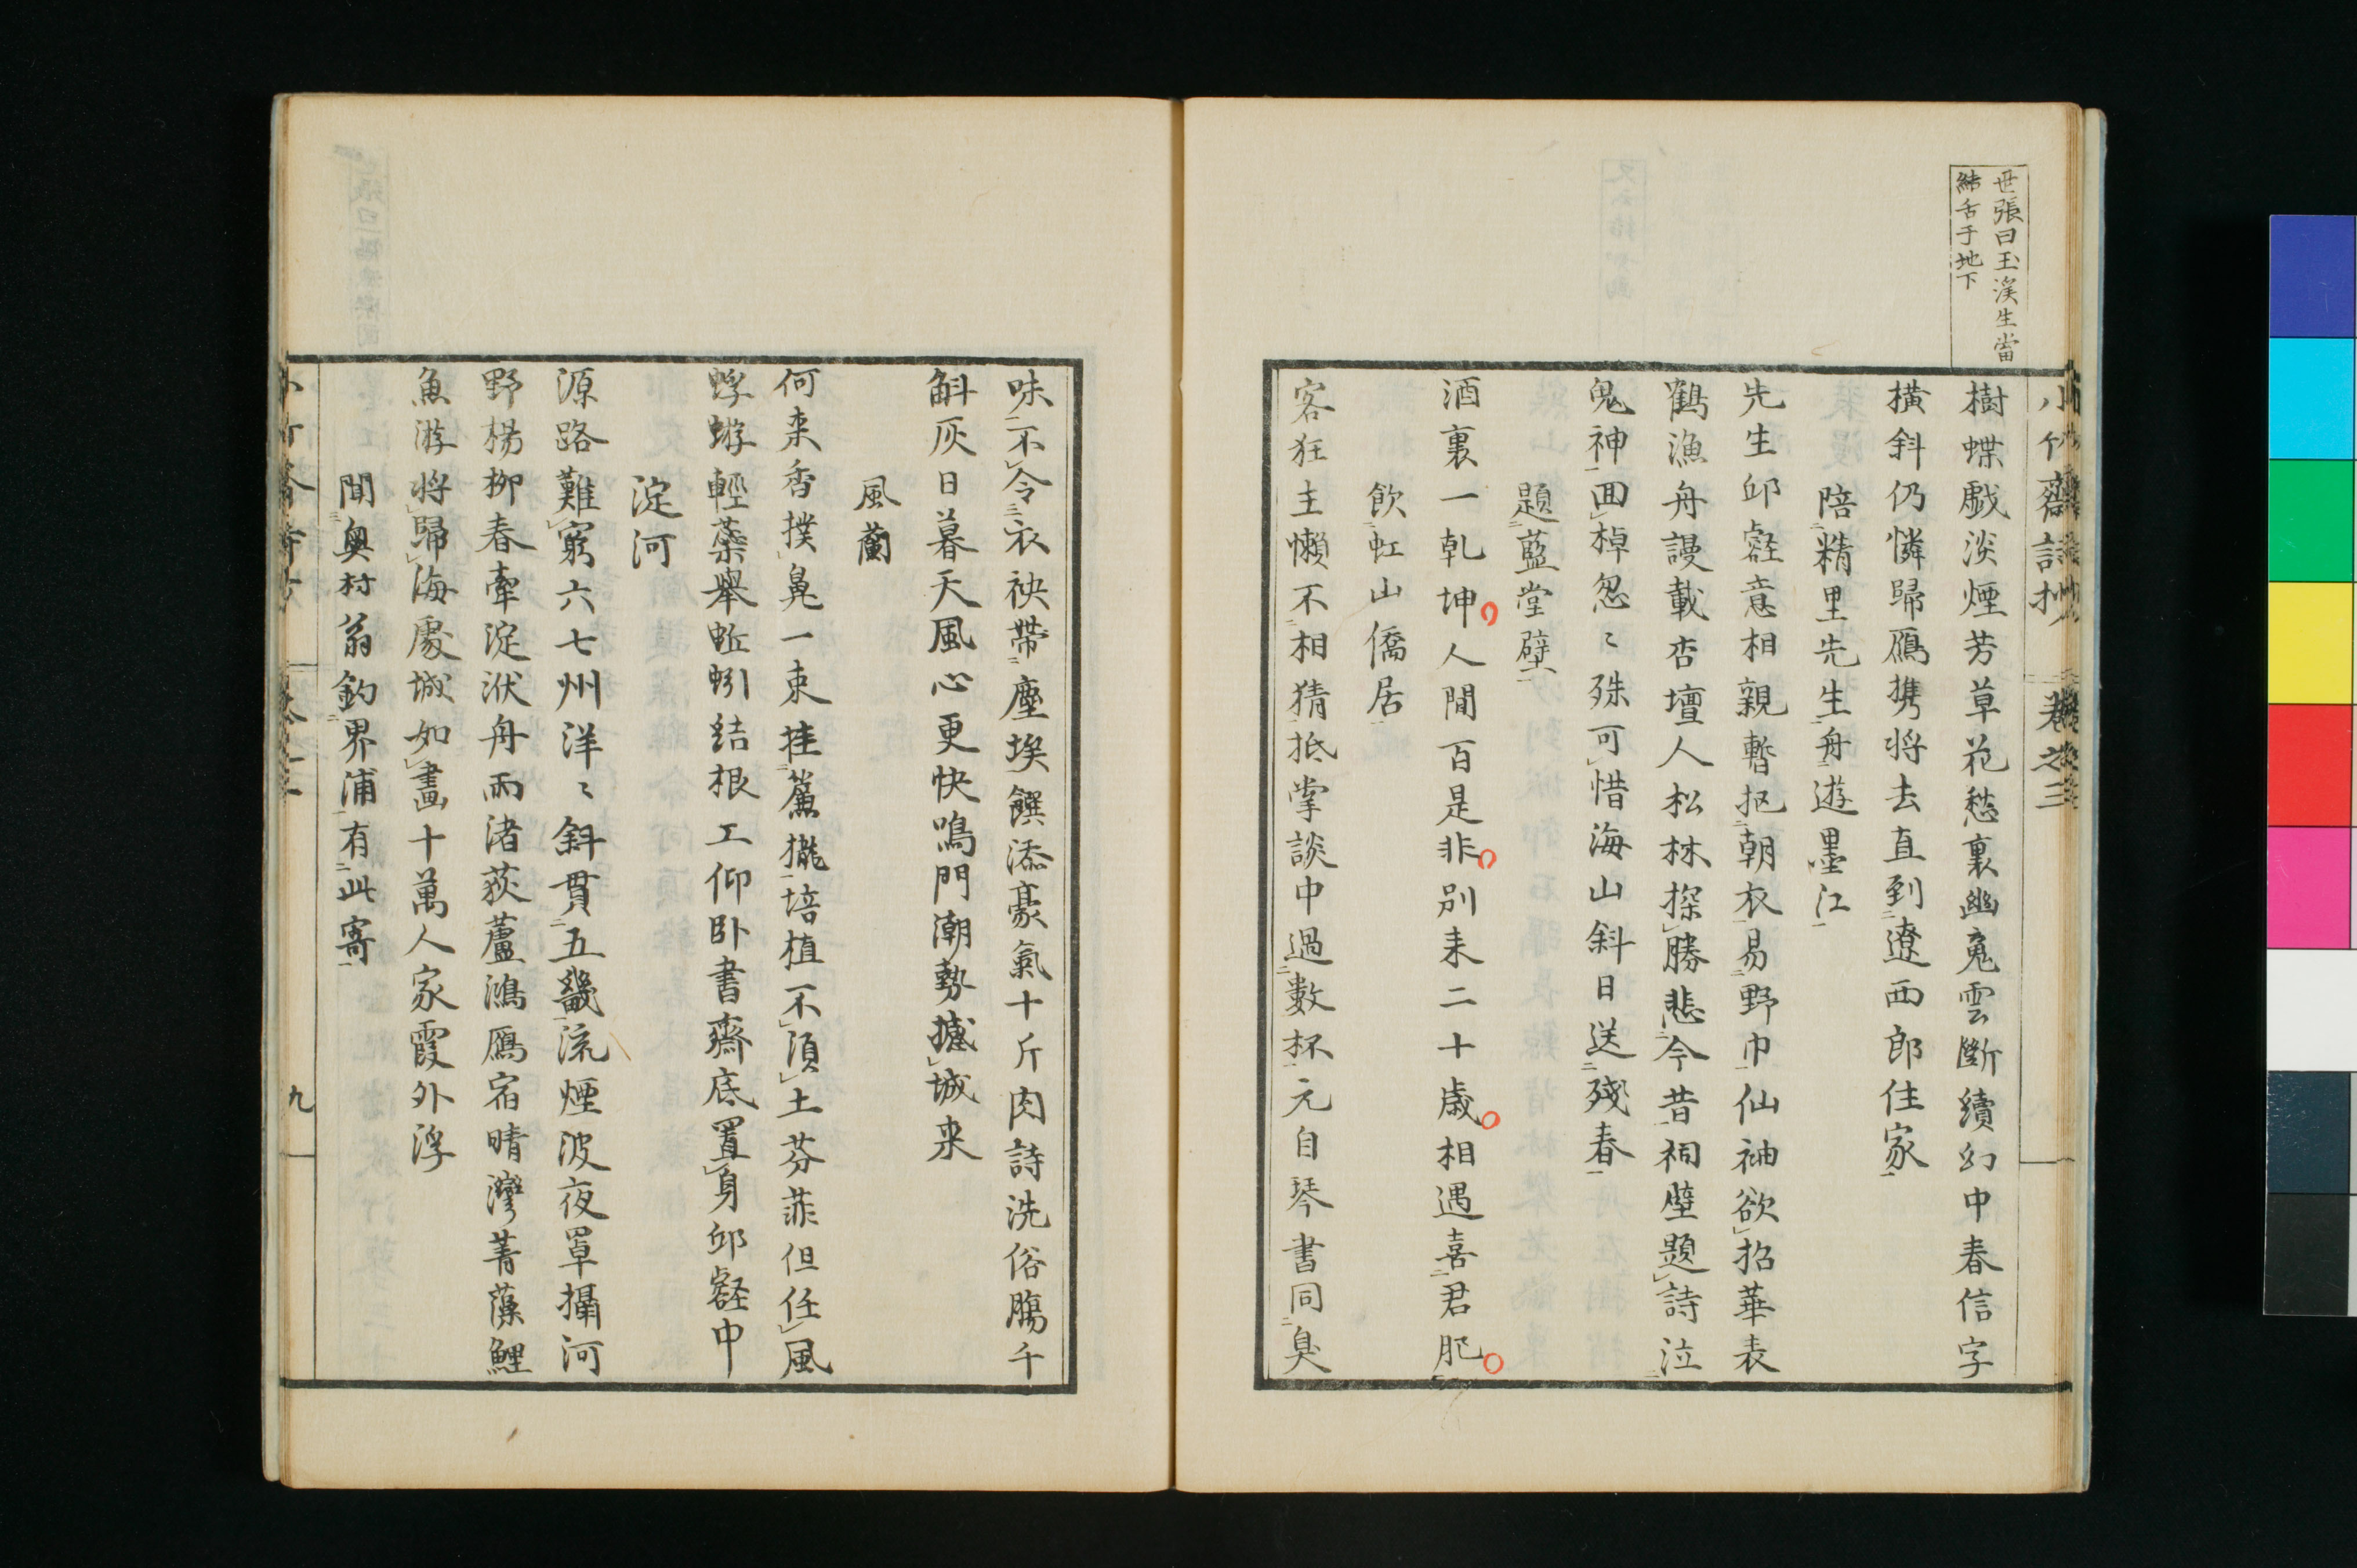 世張曰玉溪生當
結舌于地下
小竹齋詩抄 卷之三
樹蝶戯淡煙芳草花愁裏幽鬼雲斷續幻中春信字
橫斜仍憐歸鴈携将去直到遼西郎住家
陪精里先生舟遊墨江
先生邱壑意相親暫抠朝衣易野巾仙袖欲招華表
鶴漁舟謾載杏壇人松林探勝悲今昔祠壁題詩泣
鬼神囬棹忽〻殊可惜海山斜日送殘春
題藍堂壁
酒裏一乹坤人間百是非別来二十歳相遇喜君肥
飲虹山僑居
客狂主懶不相猜抵掌談中過數杯元自琴書同臭
味不令衣袂帶塵埃饌添豪氣十斤肉詩洗俗膓千
斛灰日暮天風心更快鳴門潮勢撼城来
風蘭
何来香撲鼻一束挂簷攏培植不湏土芬菲但任風
蜉蝣輕蘂舉蚯蚓結根工仰卧書齋底置身邱壑中
淀河
源路難窮六七州洋〻斜貫五畿流煙波夜罩攝河
野楊柳春牽淀洑舟雨渚荻蘆鴻鴈宿晴灣菁藻鯉
魚游将歸海處城如畵十萬人家霞外浮
聞奥村翁釣界浦有此寄
九